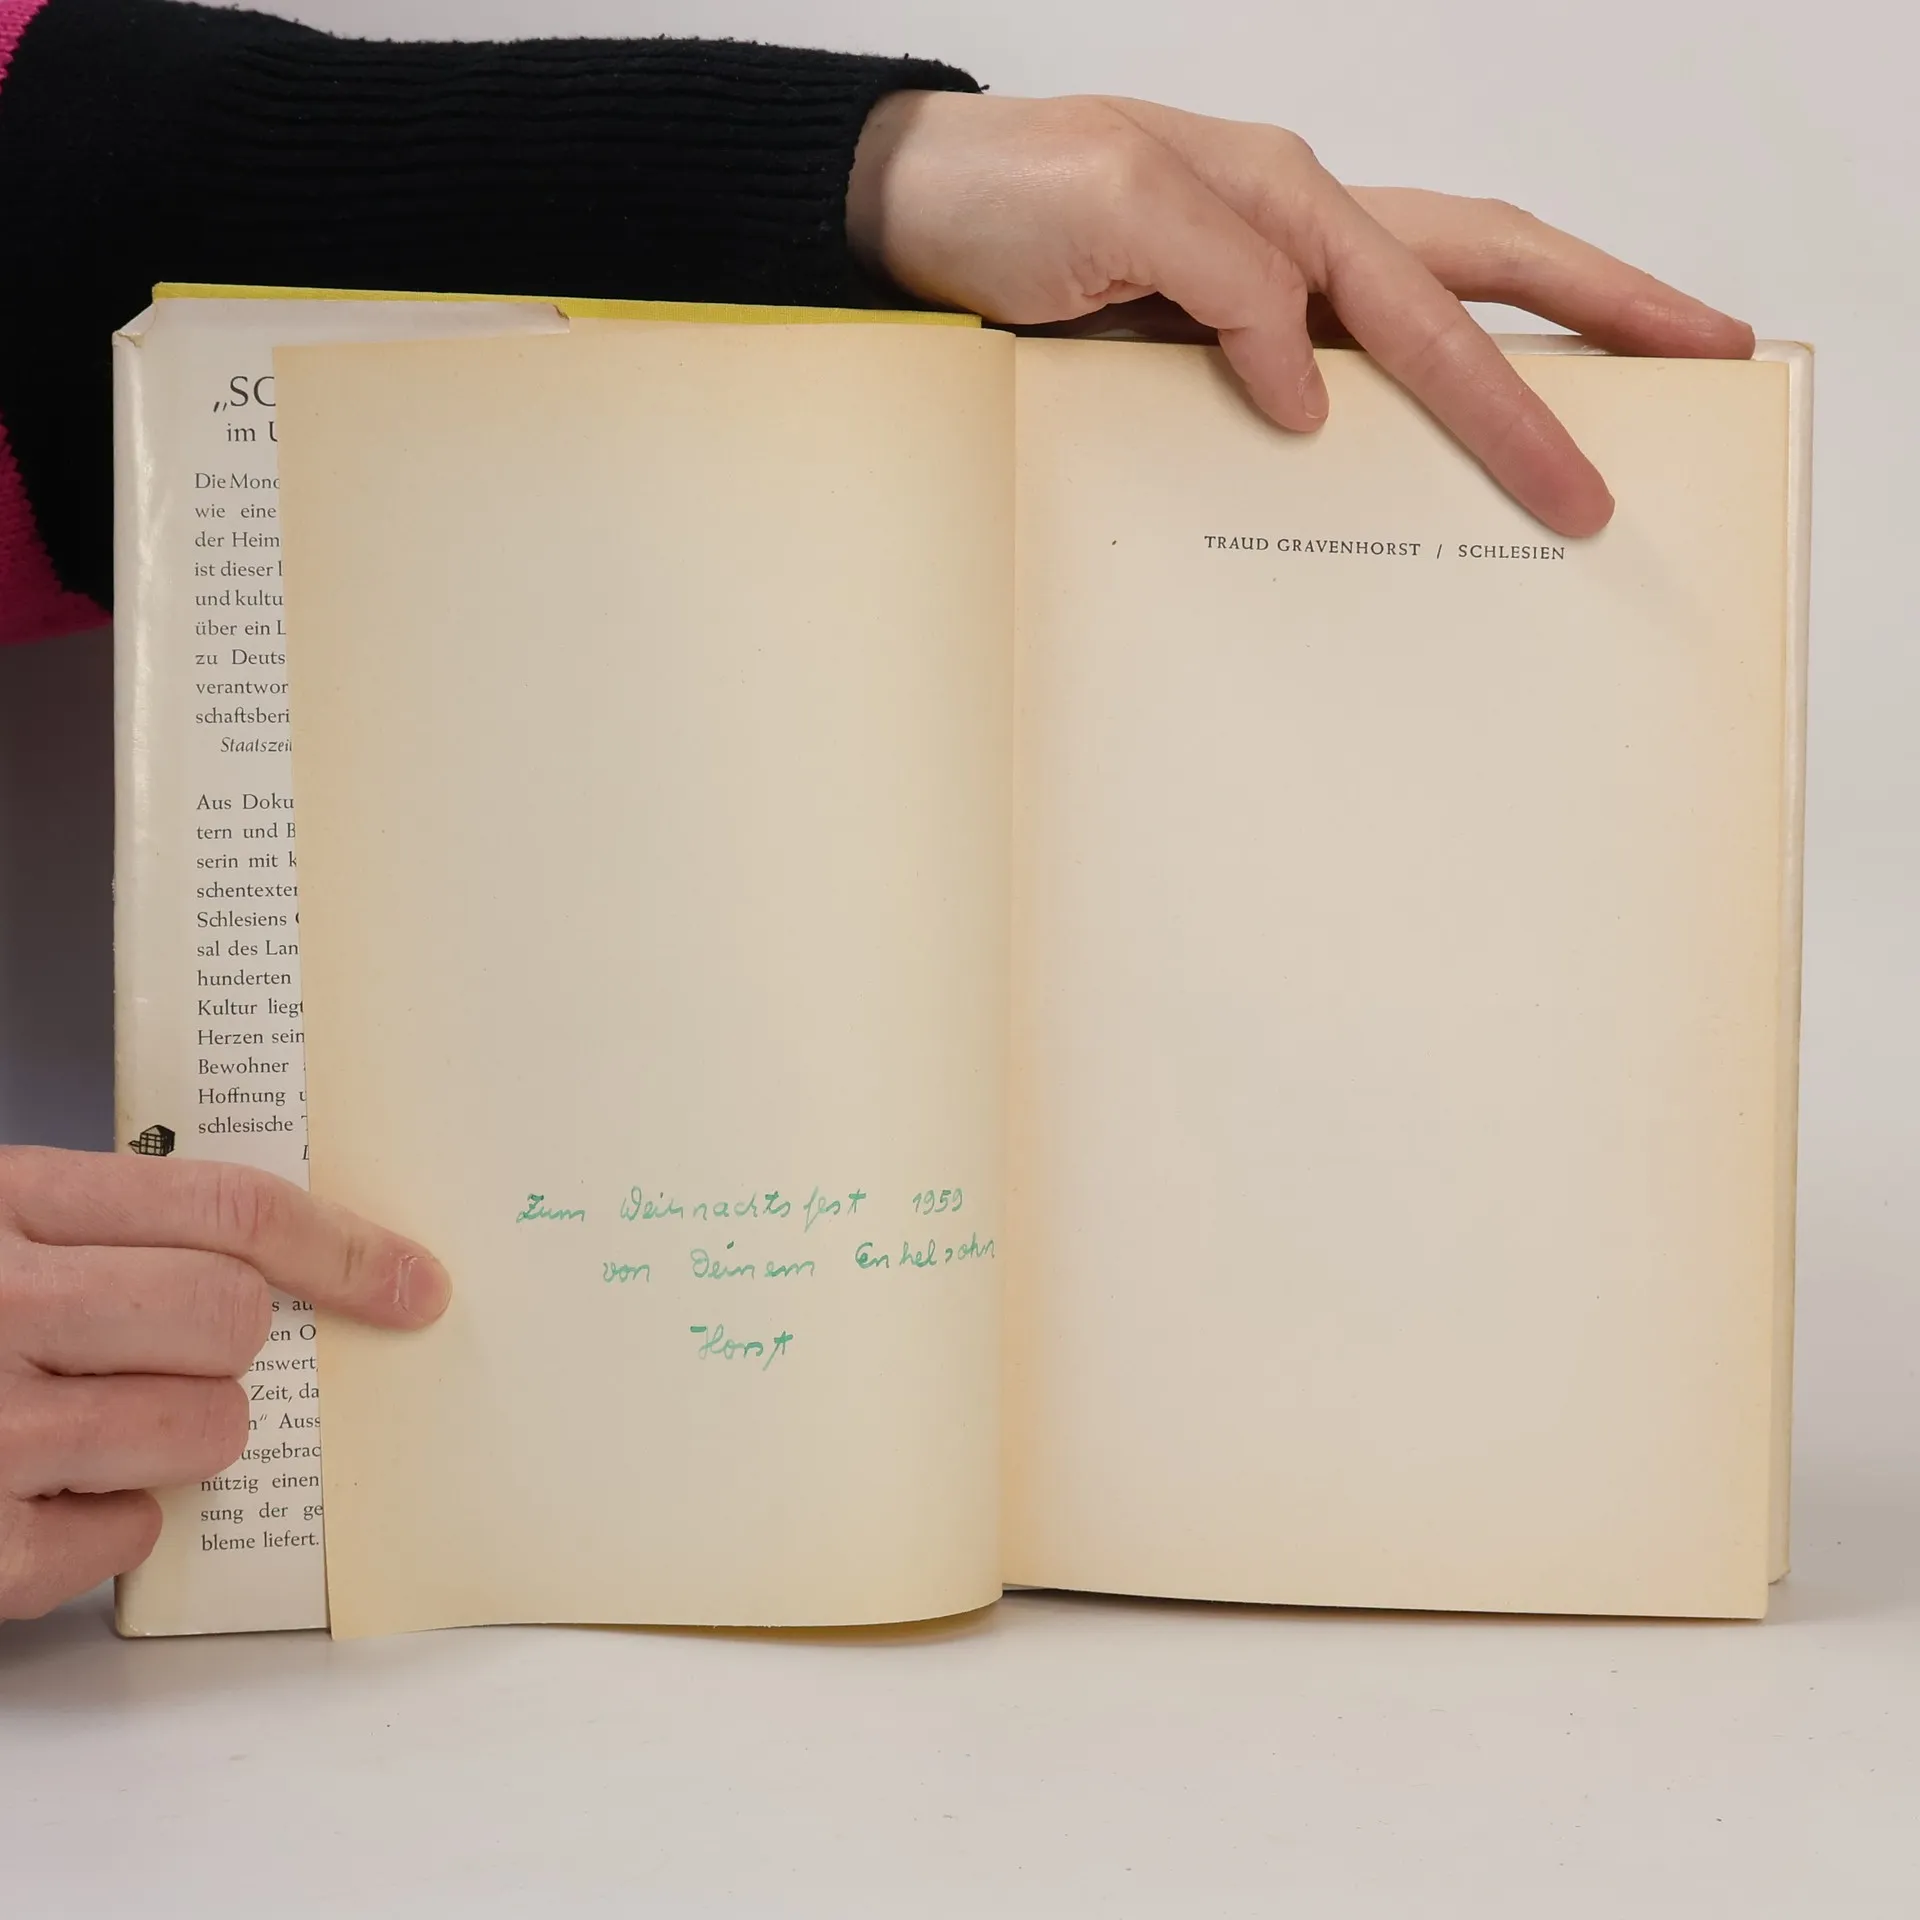 „SC
im U
Die Mono
wie eine
der Heim
ist dieser
und kultu
über ein L
zu Deuts
verantwor
schaftsberi
Staatszeit
Aus Doku
tern und B
serin mit k
schentexten
Schlesiens
sal des Lan
hunderten
Kultur liegt
Herzen sein
Bewohner
Hoffnung u
schlesische T
s au
en O
enswert,
Zeit, da
n“ Auss
usgebrac
nützig einen
sung der ge
bleme liefert.
Zum Weihnachtsfest 1959
von Deinem Enkelsohn
Horst
TRAUD GRAVENHORST / SCHLESIEN